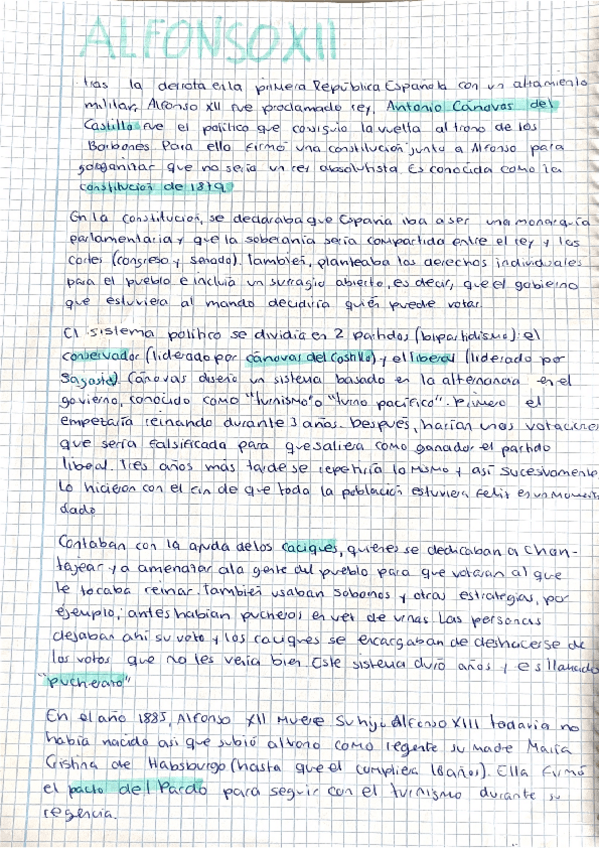 ALFONSO XII
Tras la derrota en la primera República Española con un altamiento
militar, Alfonso XII fue proclamado rey. Antonio Cánovas del
Castillo fue el político que consiguio la vuelta al trono de los
Borbones. Para ello firmó una constitución junto a Alfonso para
garganinar que no seria un rey absolutista. Es conocida como la
constitución de 1879
En la constitución, se declaraba que España iba a ser una monarquía
parlamentaria y que la soberania seria compartida entre el rey y las
cortes (congreso y senado). Tambien, planteaba los derechos individuales
para el pueblo e incluia un sufragio abierto, es decir, que el gobierno
que estuviera al mando decidiria quién puede votar.
El sistema politico se dividia en 2 partidos (bipartidismo): el
conservador (liderado por cánovas del Castillo) y el liberal (liderado por
Sagasta). Cánovas diseño un sistema basado en la alternancia en el
govierno, conocido como "turnismo" o "turno pacifico". Primero el
empezaria reinando durante 3 años. Después, harian unas votaciones
que sería falsificada para que saliera como ganador el partido
liberal. Tres años más tarde se repetiria lo mismo y así sucesivamente
Lo hicieron con el fin de que toda la población estuviera feliz en un moment
dado
Contaban con la ayuda de los caciques, quienes se dedicaban a chan-
tajear y a amenazar a la gente del pueblo para que votaran al que
le tocaba reinar. Tambien usaban sobornos y otras estrategias, por
ejemplo; antes habian pucheros en vez de urnas. Las personas
dejaban ahi su voto y los caciques se encargaban de deshacerse de
los votos que no les venia bien. Este sistema duró años y es llamado
"pucherazo"
En el año 1885, Alfonso XII muere. Su hijo Alfonso XIII todavia no
habia nacido asi que subió al trono como regente su madre María
Cristina de Habsburgo (hasta que el cumpliera 18 años). Ella firmó
el pacto del Pardo para seguir con el turnismo durante su
regencia.